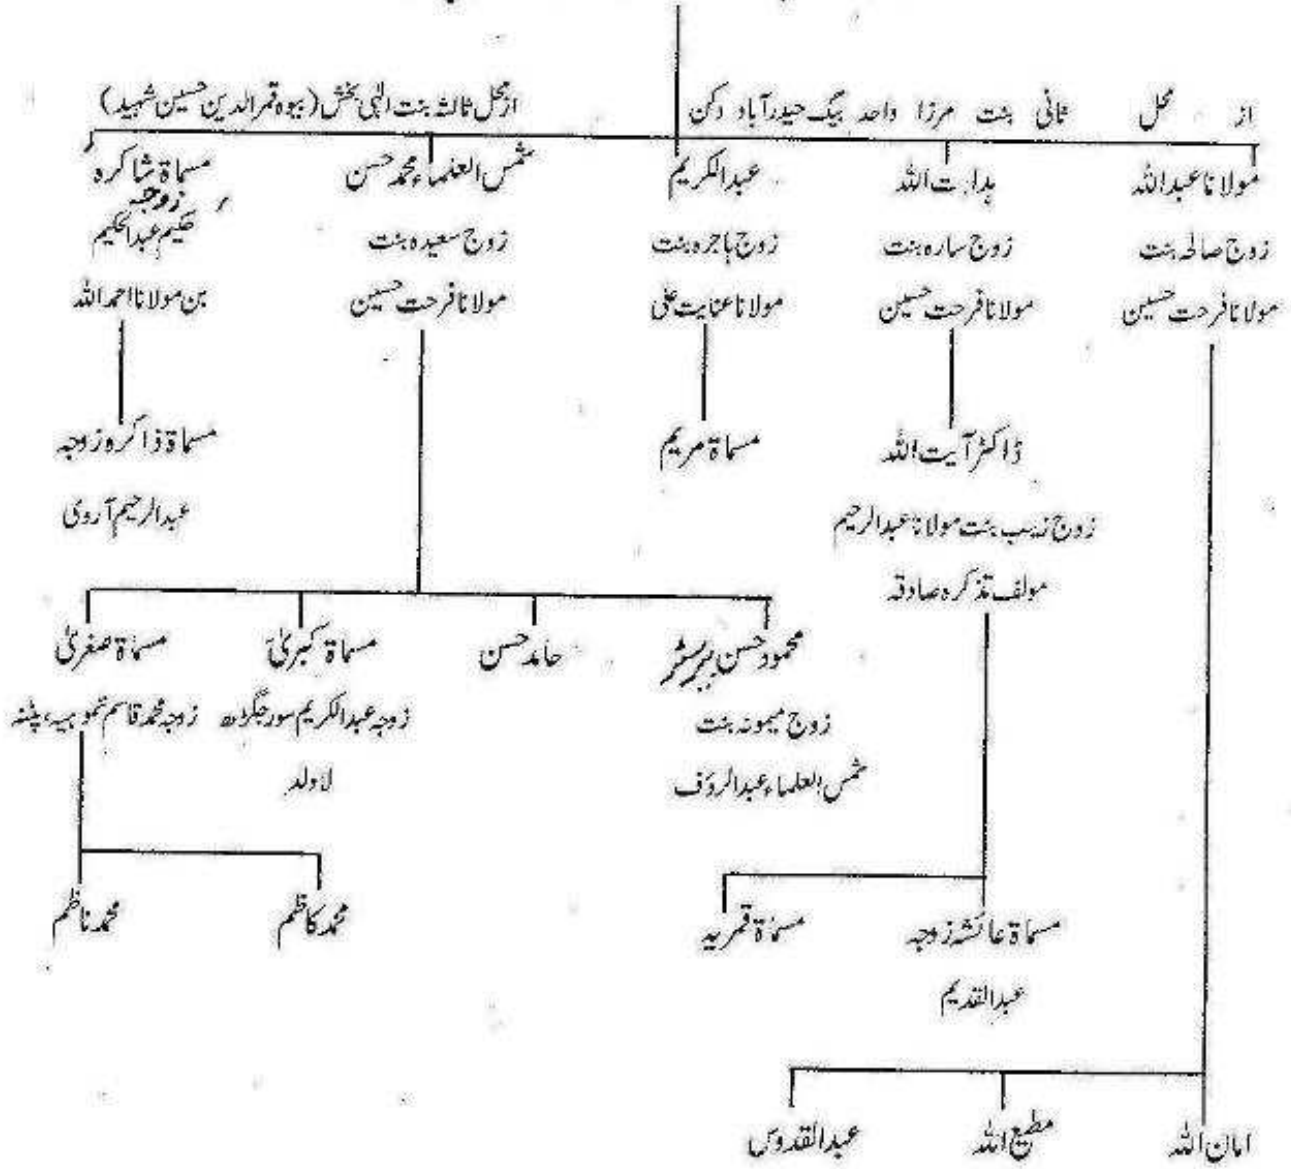 از محل ثانی بنت مرزا واحد بیگ حیدرآباد دکن
از محل ثالثہ بنت الٰہی بخش (بیوہ قمرالدین حسین شہید)
مولانا عبداللہ
زوج صالحہ بنت
مولانا فرحت حسین
ہدایت اللہ
زوج سارہ بنت
مولانا فرحت حسین
عبدالکریم
زوج ہاجرہ بنت
مولانا عنایت علی
شمس العلماء محمد حسن
زوج سعیدہ بنت
مولانا فرحت حسین
مسماۃ شاکرہ
زوجہ
حکیم عبدالحکیم
بن مولانا احمد اللہ
ڈاکٹر آیت اللہ
زوج زینب بنت مولانا عبدالرحیم
مولف تذکرہ صادقہ
مسماۃ مریم
مسماۃ ذاکرہ زوجہ
عبدالرحیم آروی
محمود حسن بیرسٹر
زوج میمونہ بنت
شمس العلماء عبدالرؤف
حامد حسن
مسماۃ کبریٰ
زوجہ عبدالکریم سورجگڑھ
لاولد
مسماۃ صغریٰ
زوجہ محمد قاسم نموہیہ، پٹنہ
مسماۃ عائشہ زوجہ
عبدالقدیم
مسماۃ قمریہ
محمد کاظم
محمد ناظم
امان اللہ
مطیع اللہ
عبدالقدوس